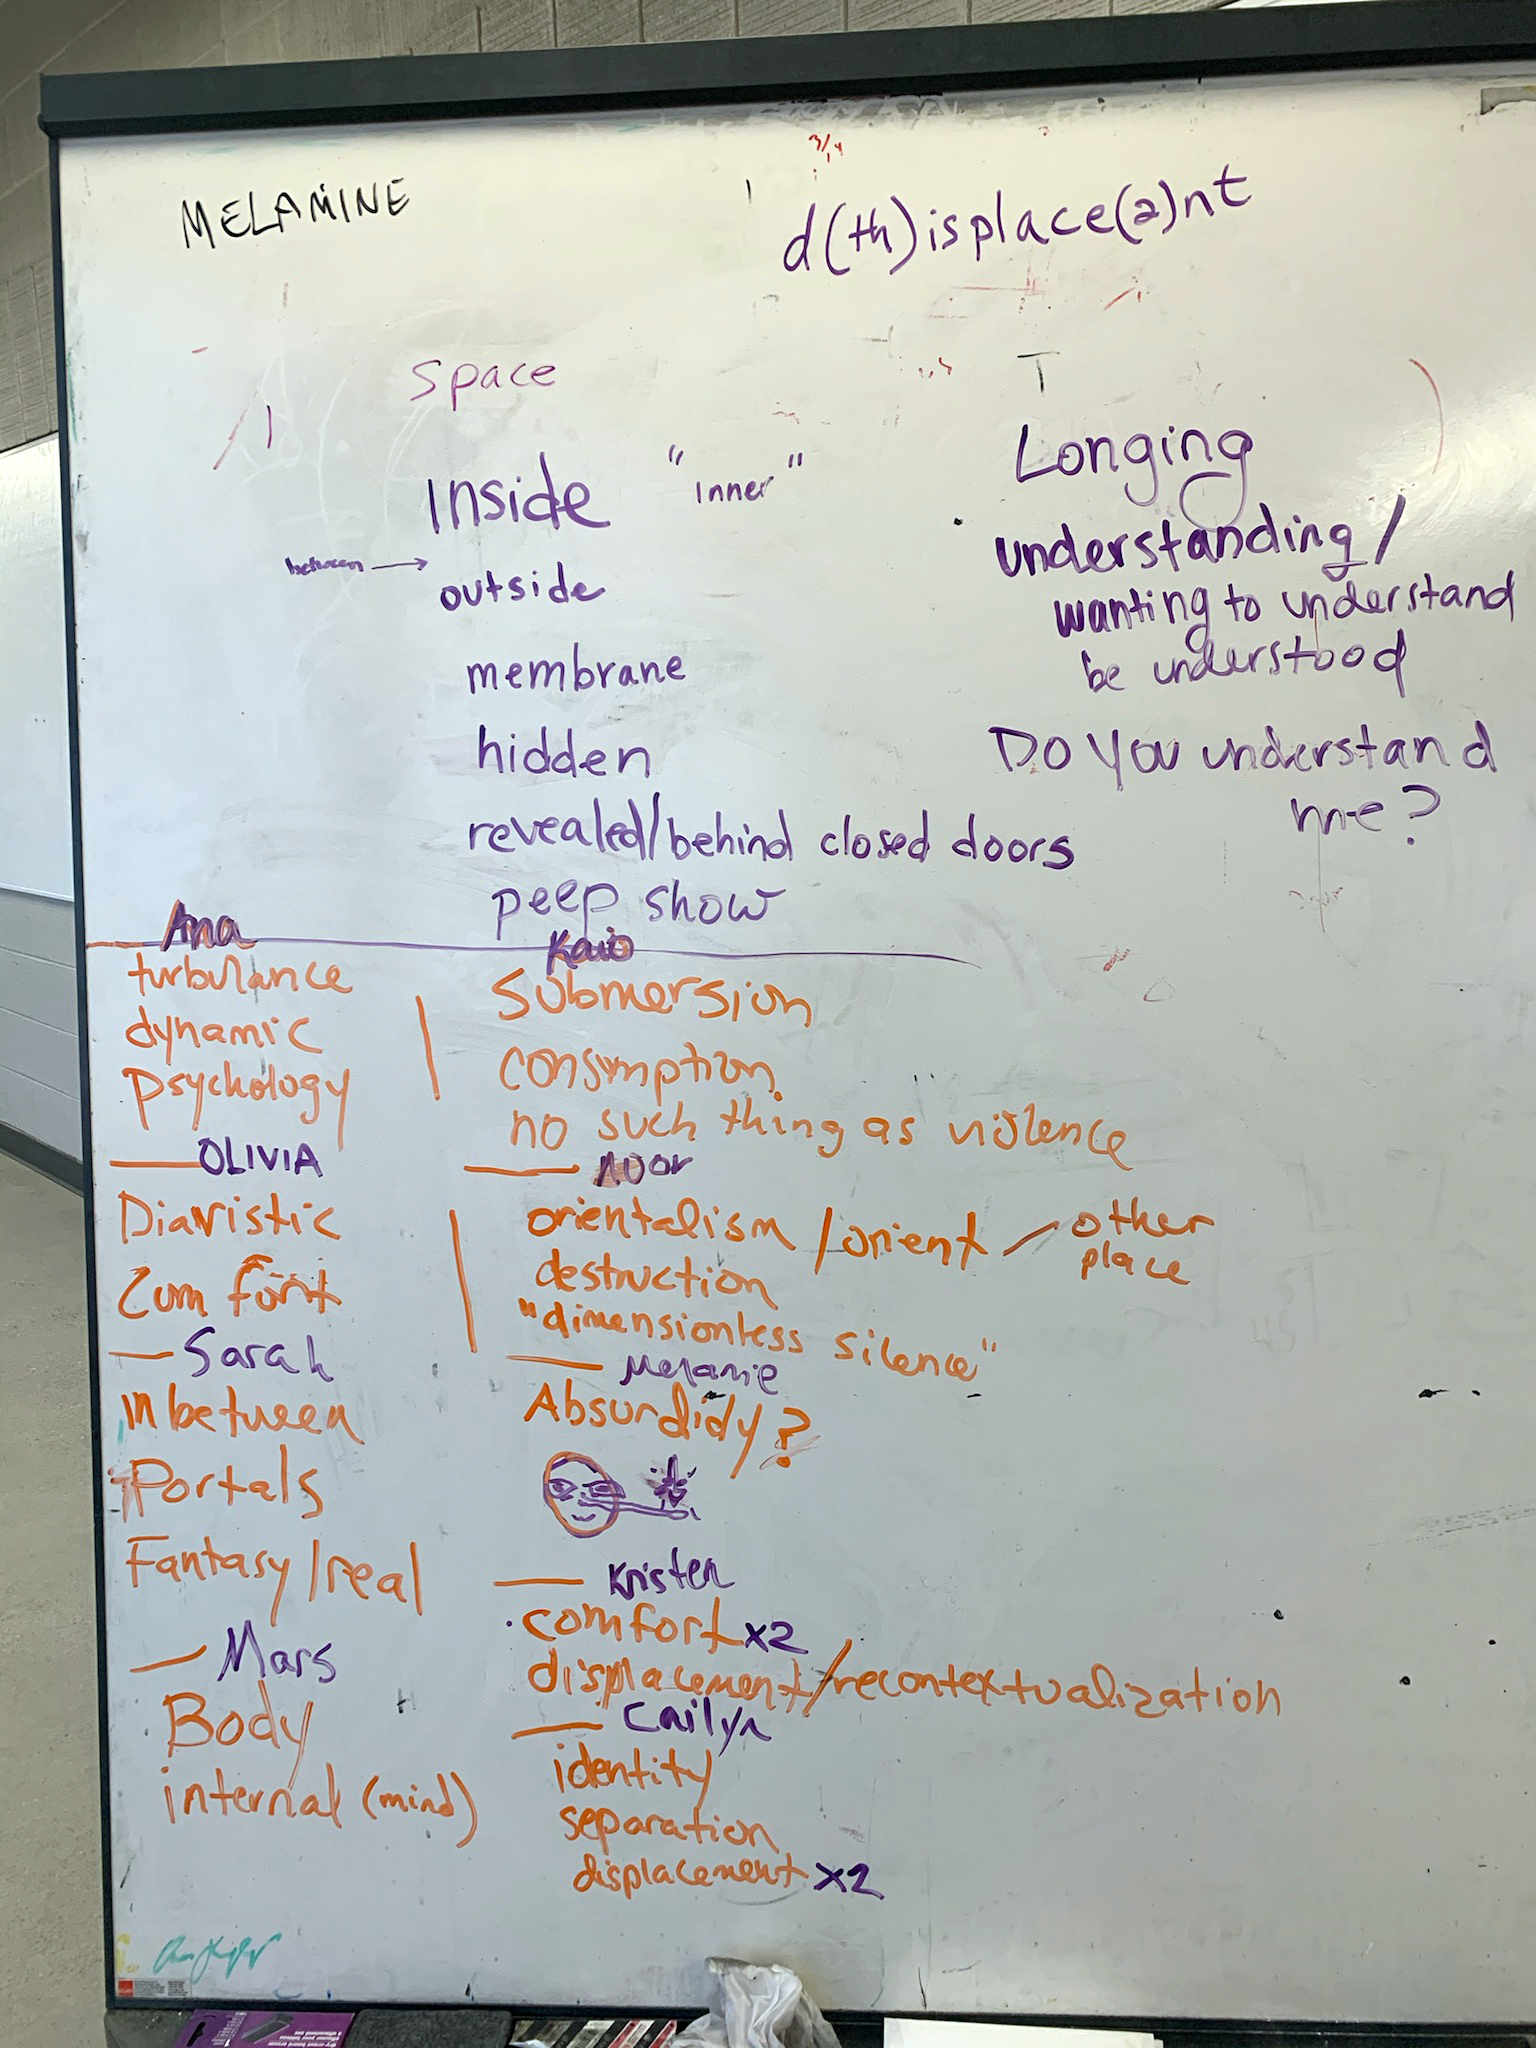 3/14
MELAMINE
d(th)isplace(2)nt
space
Inside "inner"
between → outside
membrane
hidden
revealed/behind closed doors
peep show
Longing
understanding/
wanting to understand
be understood
Do you understand
me?
Ana
turbulance
dynamic
Psychology
OLIVIA
Diaristic
Com fort
Sarah
in between
Portals
Fantasy/real
Mars
Body
internal (mind)
Kaio
submersion
consumption
no such thing as violence
Noor
orientalism/orient — other
place
destruction
"dimensionless silence"
Melanie
Absurdidy?
Kristen
comfort x2
displacement/recontextualization
Cailyn
identity
separation
displacement x2